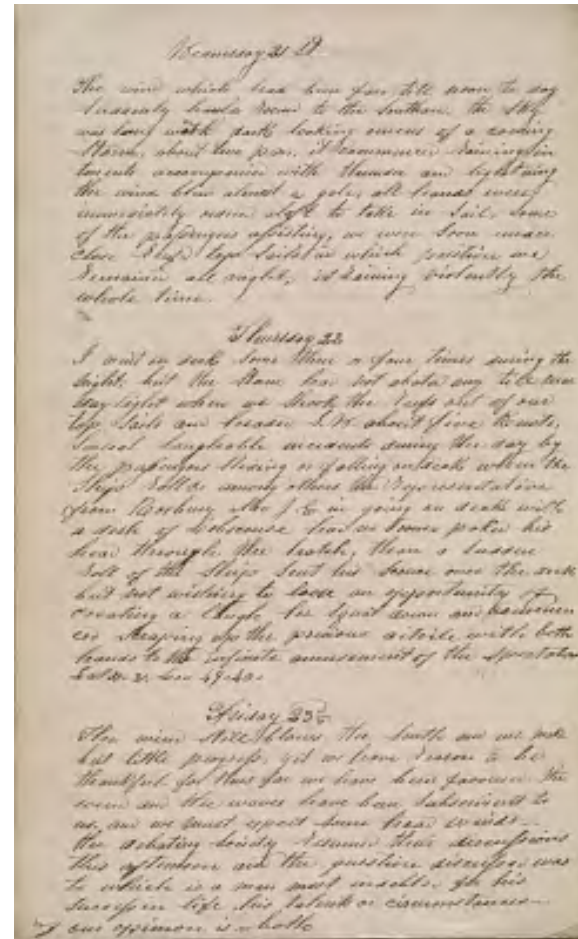 Wednesday 21st
The wind which had been fair till noon to day
suddenly hauld round to the Southard. the Sky
was lowf with dark looking omens of a coming
Storm, about two p.m. it commenced raining in
torrents accompanied with thunder and lightning
the wind blew almost a gale, all hands were
immediately order aloft to take in Sail, some
of the passengers assisting, we were soon under
close reefd top Sails in which position we
remained all night, it raining violently the
whole time.
Thursday 22
I went on deck some three or four times during the
night. but the Storm had not abated any till near
day light when we shook the reefs out of our
top Sails and headed S.W about five Knots,
several laughable incidents during the day by
the passengers sliding or falling on deck when the
Ships rolld among others the representative
from Roxbury who in going on deck with
a dish of Lobscouse had no sooner poked his
head through the hatch, than a sudden
roll of the Ship sent his over the deck
but not wishing to loose an opportunity of
creating a laugh he squat down and commen
ced scraping up the precious article with both
hands to the infinite amusement of the Spectators
Friday 23rd
The wind still blows the South and we make
but little progress, yet we have reason to be
thankful for thus far we have been favored the
wind and the waves have been subservient to
us, and we must expect some head winds
the debating Society resumed their discussions
this afternoon and the question discussed was
to which is a man most indebted for his
success in life his talents or circumstances
our opinion is both